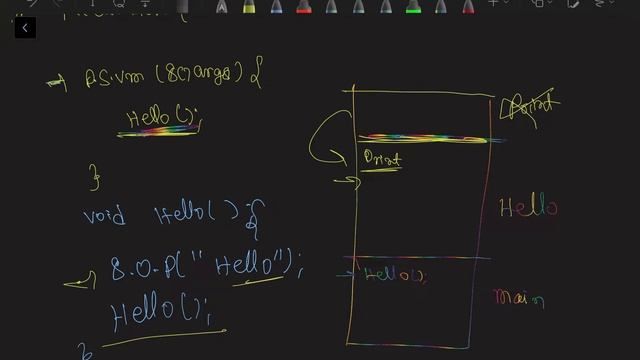 P.S.v.m (S() args) {
Hello();
}
void Hello() {
S.O.P(" Hello");
Hello();
}
Print
Print
Hello
Hello();
main